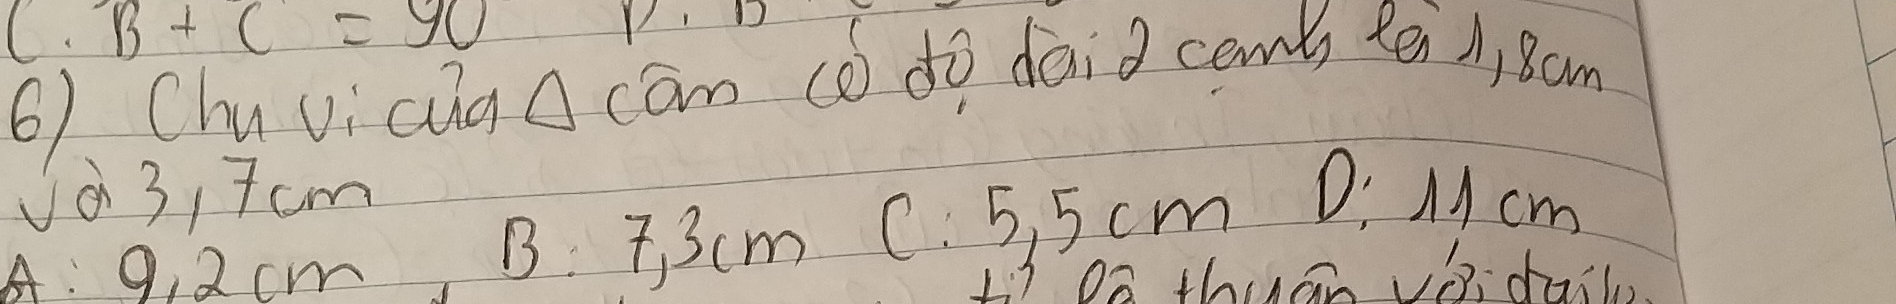 C. B + C = 90 D. B
6) Chu vi của Δ cân có độ dài 2 cạnh là 1,8cm
và 3,7cm
A: 9,2cm B: 7,3cm C: 5,5cm D: 11cm
tỉ lệ thuận với đại